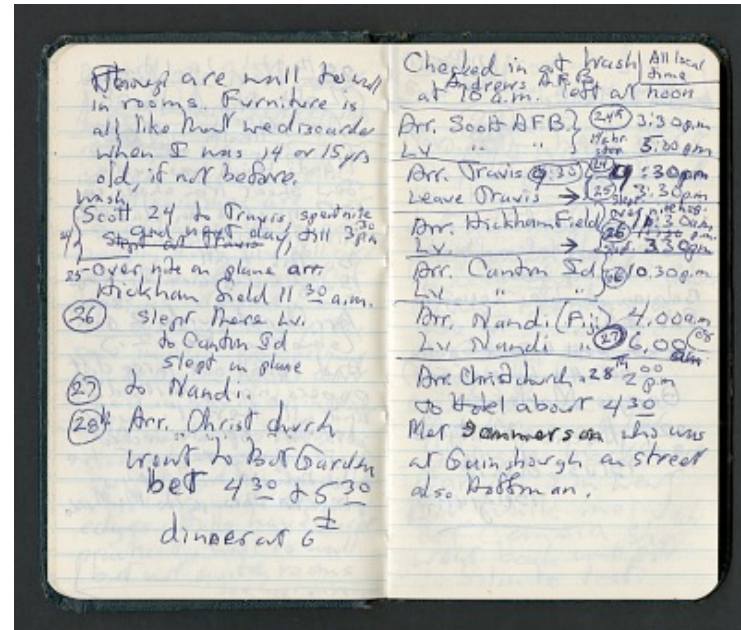 though are wall to wall
in rooms. Furniture is
all like that we discarded
when I was 14 or 15 yrs
old, if not before.
Wash
Scott 24 to Travis, spent nite
24 and next day, till 3 30 pm
Slept at Travis
25-Over nite on plane arr.
Hickham Field 11 30 a.m.
26 Slept there Lv.
to Canton Id
Slept on plane
27 to Nandi.
28th Arr. Christ church
went to Bot Garden
bet 4 30 + 5 30
dinner at 6
Checked in at Wash All local time
Andrews AFB
at 10 a.m. left at noon
Arr. Scott AFB 24th 3:30 p.m
Lv " " stop 5:30 pm
Arr. Travis 9:30 24 9:30pm
Leave Travis → 25 3:30pm
Arr. Hickham Field 26
Lv. → 3:30pm
Arr. Canton Id 26 10.30 p.m
Lv " "
Arr. Nandi (Fiji 4.00 a.m
Lv Nandi " 27 6.00 am
Arr Christchurch. 28th 2 00 p.m
to Hotel about 4 30
Met who was
at on street
also Hoffman.